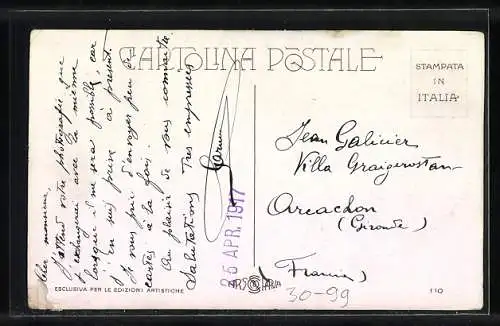 CARTOLINA POSTALE
STAMPATA
IN
ITALIA
Cher monsieur,
J'attend votre photografie que
j'echangerai avec la même
lorsque il me sera possible, car
j'en suis prive à présent.
Je vous prie d'envoyer peu de
cartes à la fois.
Au plaisir de vous connaître
Salutations Tres empressées
26 APR. 1917
Jean Galicier
Villa Graigcrostan
Arcachon
(Gironde)
France
30-99
ESCLUSIVA PER LE EDIZIONI ARTISTICHE
110